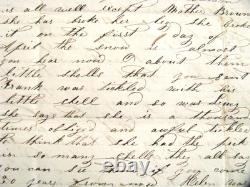 is all well except Mother Brown
she has broke her leg She broke
it on the first day of
April the snow is almost
you hear now O about them
little shells that you sent
Frank was tickled with his
little shell and so was
she says that she is a thousand
times obliged and awful tickled
to think that she had the
in so many shells they all
you can see
50 years from now Helen